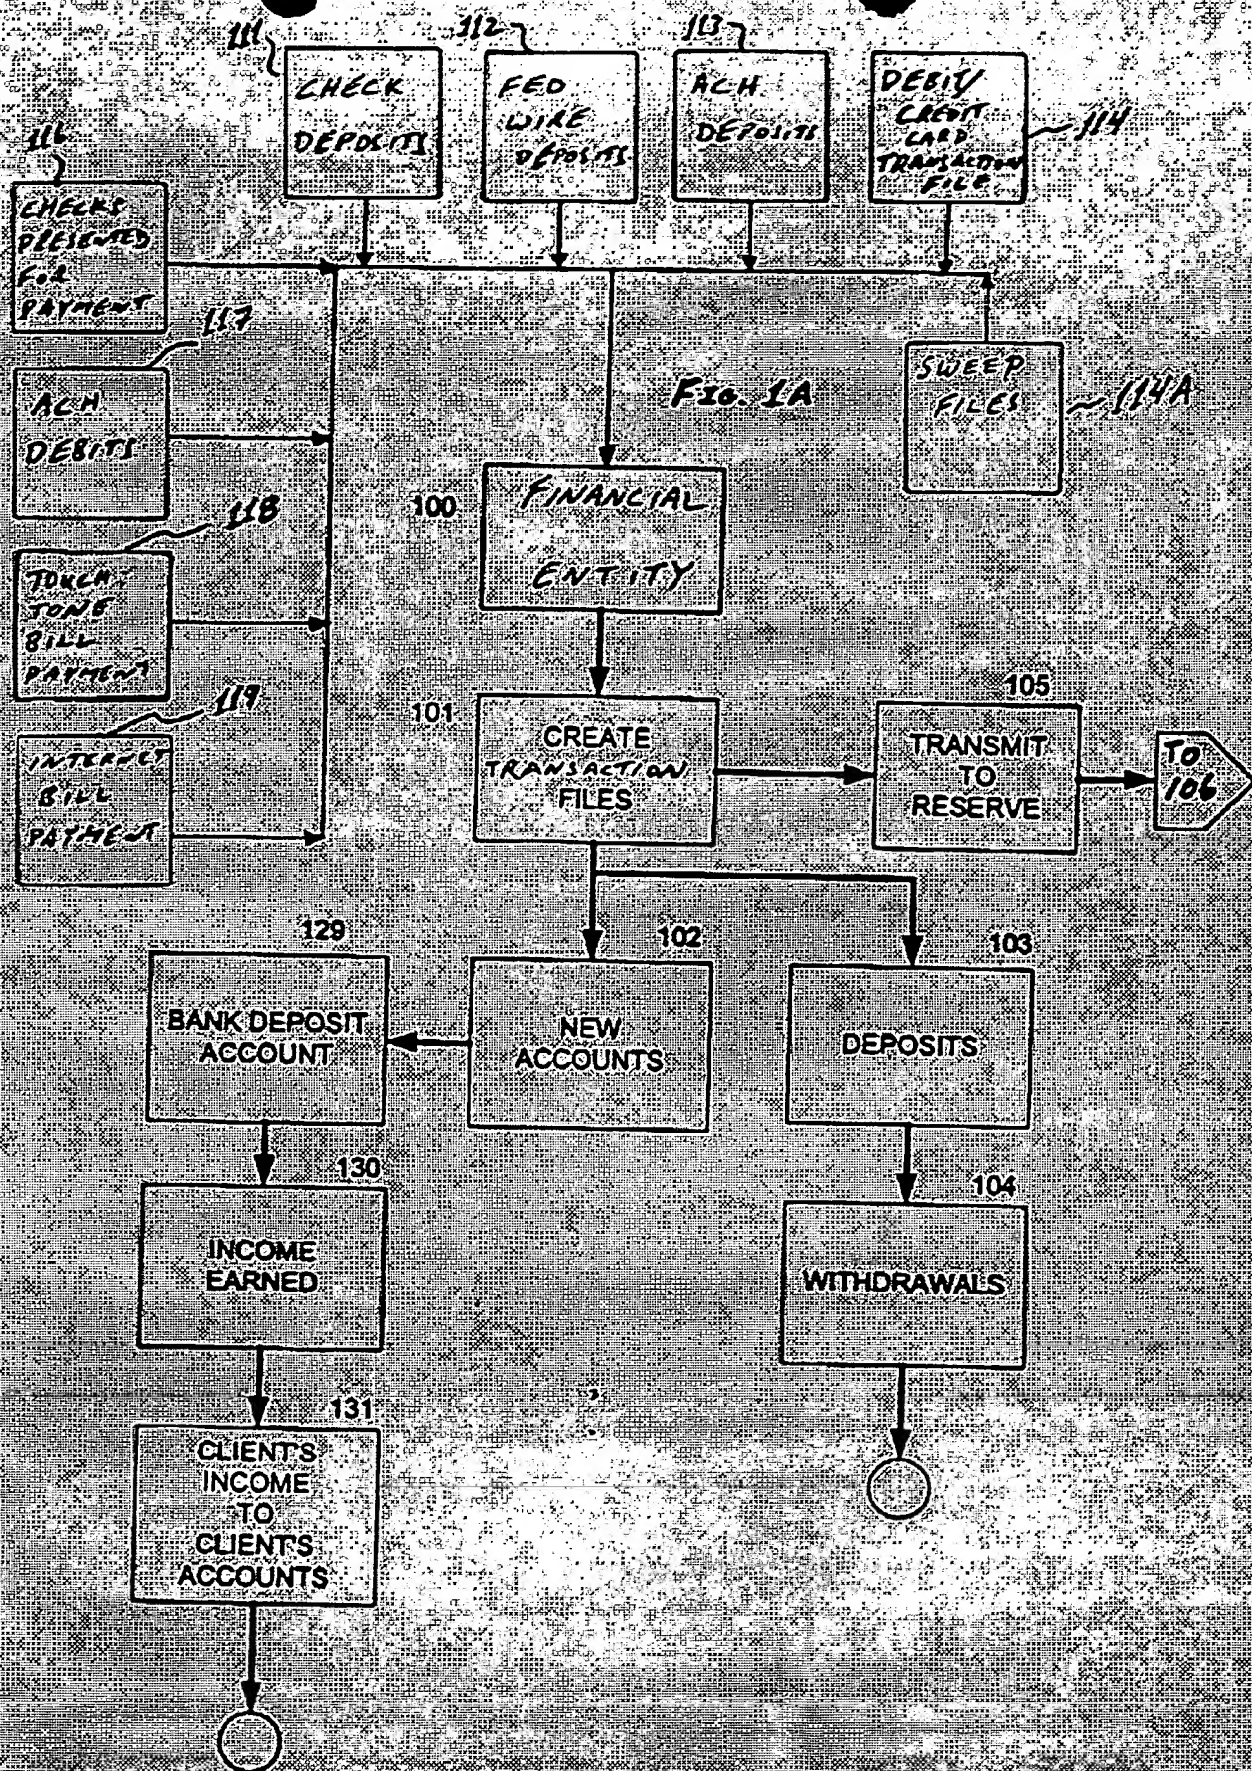 111
CHECK
DEPOSITS
112
FED
WIRE
DEPOSITS
113
ACH
DEPOSITS
DEBIT/
CREDIT
CARD
TRANSACTION
FILE
114
116
CHECKS
PRESENTED
FOR
PAYMENT
117
ACH
DEBITS
118
TOUCH
TONE
BILL
PAYMENT
119
INTERNET
BILL
PAYMENT
SWEEP
FILES
114A
FIG. 1A
100
FINANCIAL
ENTITY
101
CREATE
TRANSACTION
FILES
105
TRANSMIT
TO
RESERVE
TO
106
129
BANK DEPOSIT
ACCOUNT
102
NEW
ACCOUNTS
103
DEPOSITS
130
INCOME
EARNED
104
WITHDRAWALS
131
CLIENT'S
INCOME
TO
CLIENT'S
ACCOUNTS